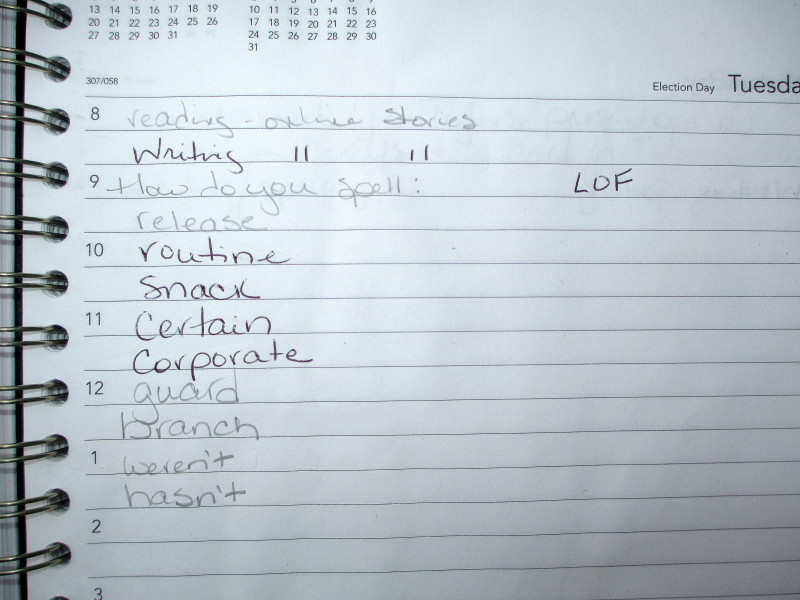 6 7 8 9
13 14 15 16 17 18 19
20 21 22 23 24 25 26
27 28 29 30 31
10 11 12 13 14 15 16
17 18 19 20 21 22 23
24 25 26 27 28 29 30
31
307/058
Election Day Tuesda
8 reading - online stories
Writing " "
9 How do you spell: LOF
release
10 routine
Snack
11 Certain
Corporate
12 guard
branch
1 weren't
hasn't
2
3